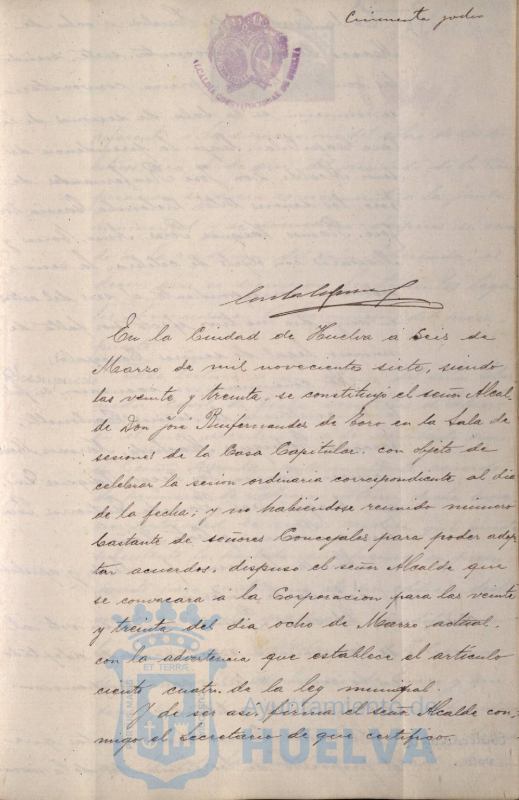 Cincuenta y dos
ALCALDIA CONSTITUCIONAL DE HUELVA
En la Ciudad de Huelva á seis de
Marzo de mil novecientos siete, siendo
las veinte y treinta, se constituyó el señor Alcal-
de Don José Ruifernandez de Toro en la Sala de
sesiones de la Casa Capitular, con objeto de
celebrar la sesion ordinaria correspondiente al dia
de la fecha; y no habiéndose reunido número
bastante de señores Concejales para poder adop-
tar acuerdos, dispuso el señor Alcalde que
se convocára á la Corporacion para las veinte
y treinta del dia ocho de Marzo actual,
con la advertencia que establece el artículo
ciento cuatro de la ley municipal.
Y de ser asi firma el señor Alcalde con-
migo el Secretario de que certifico.
ET TERRÆ
Ayuntamiento de
HUELVA